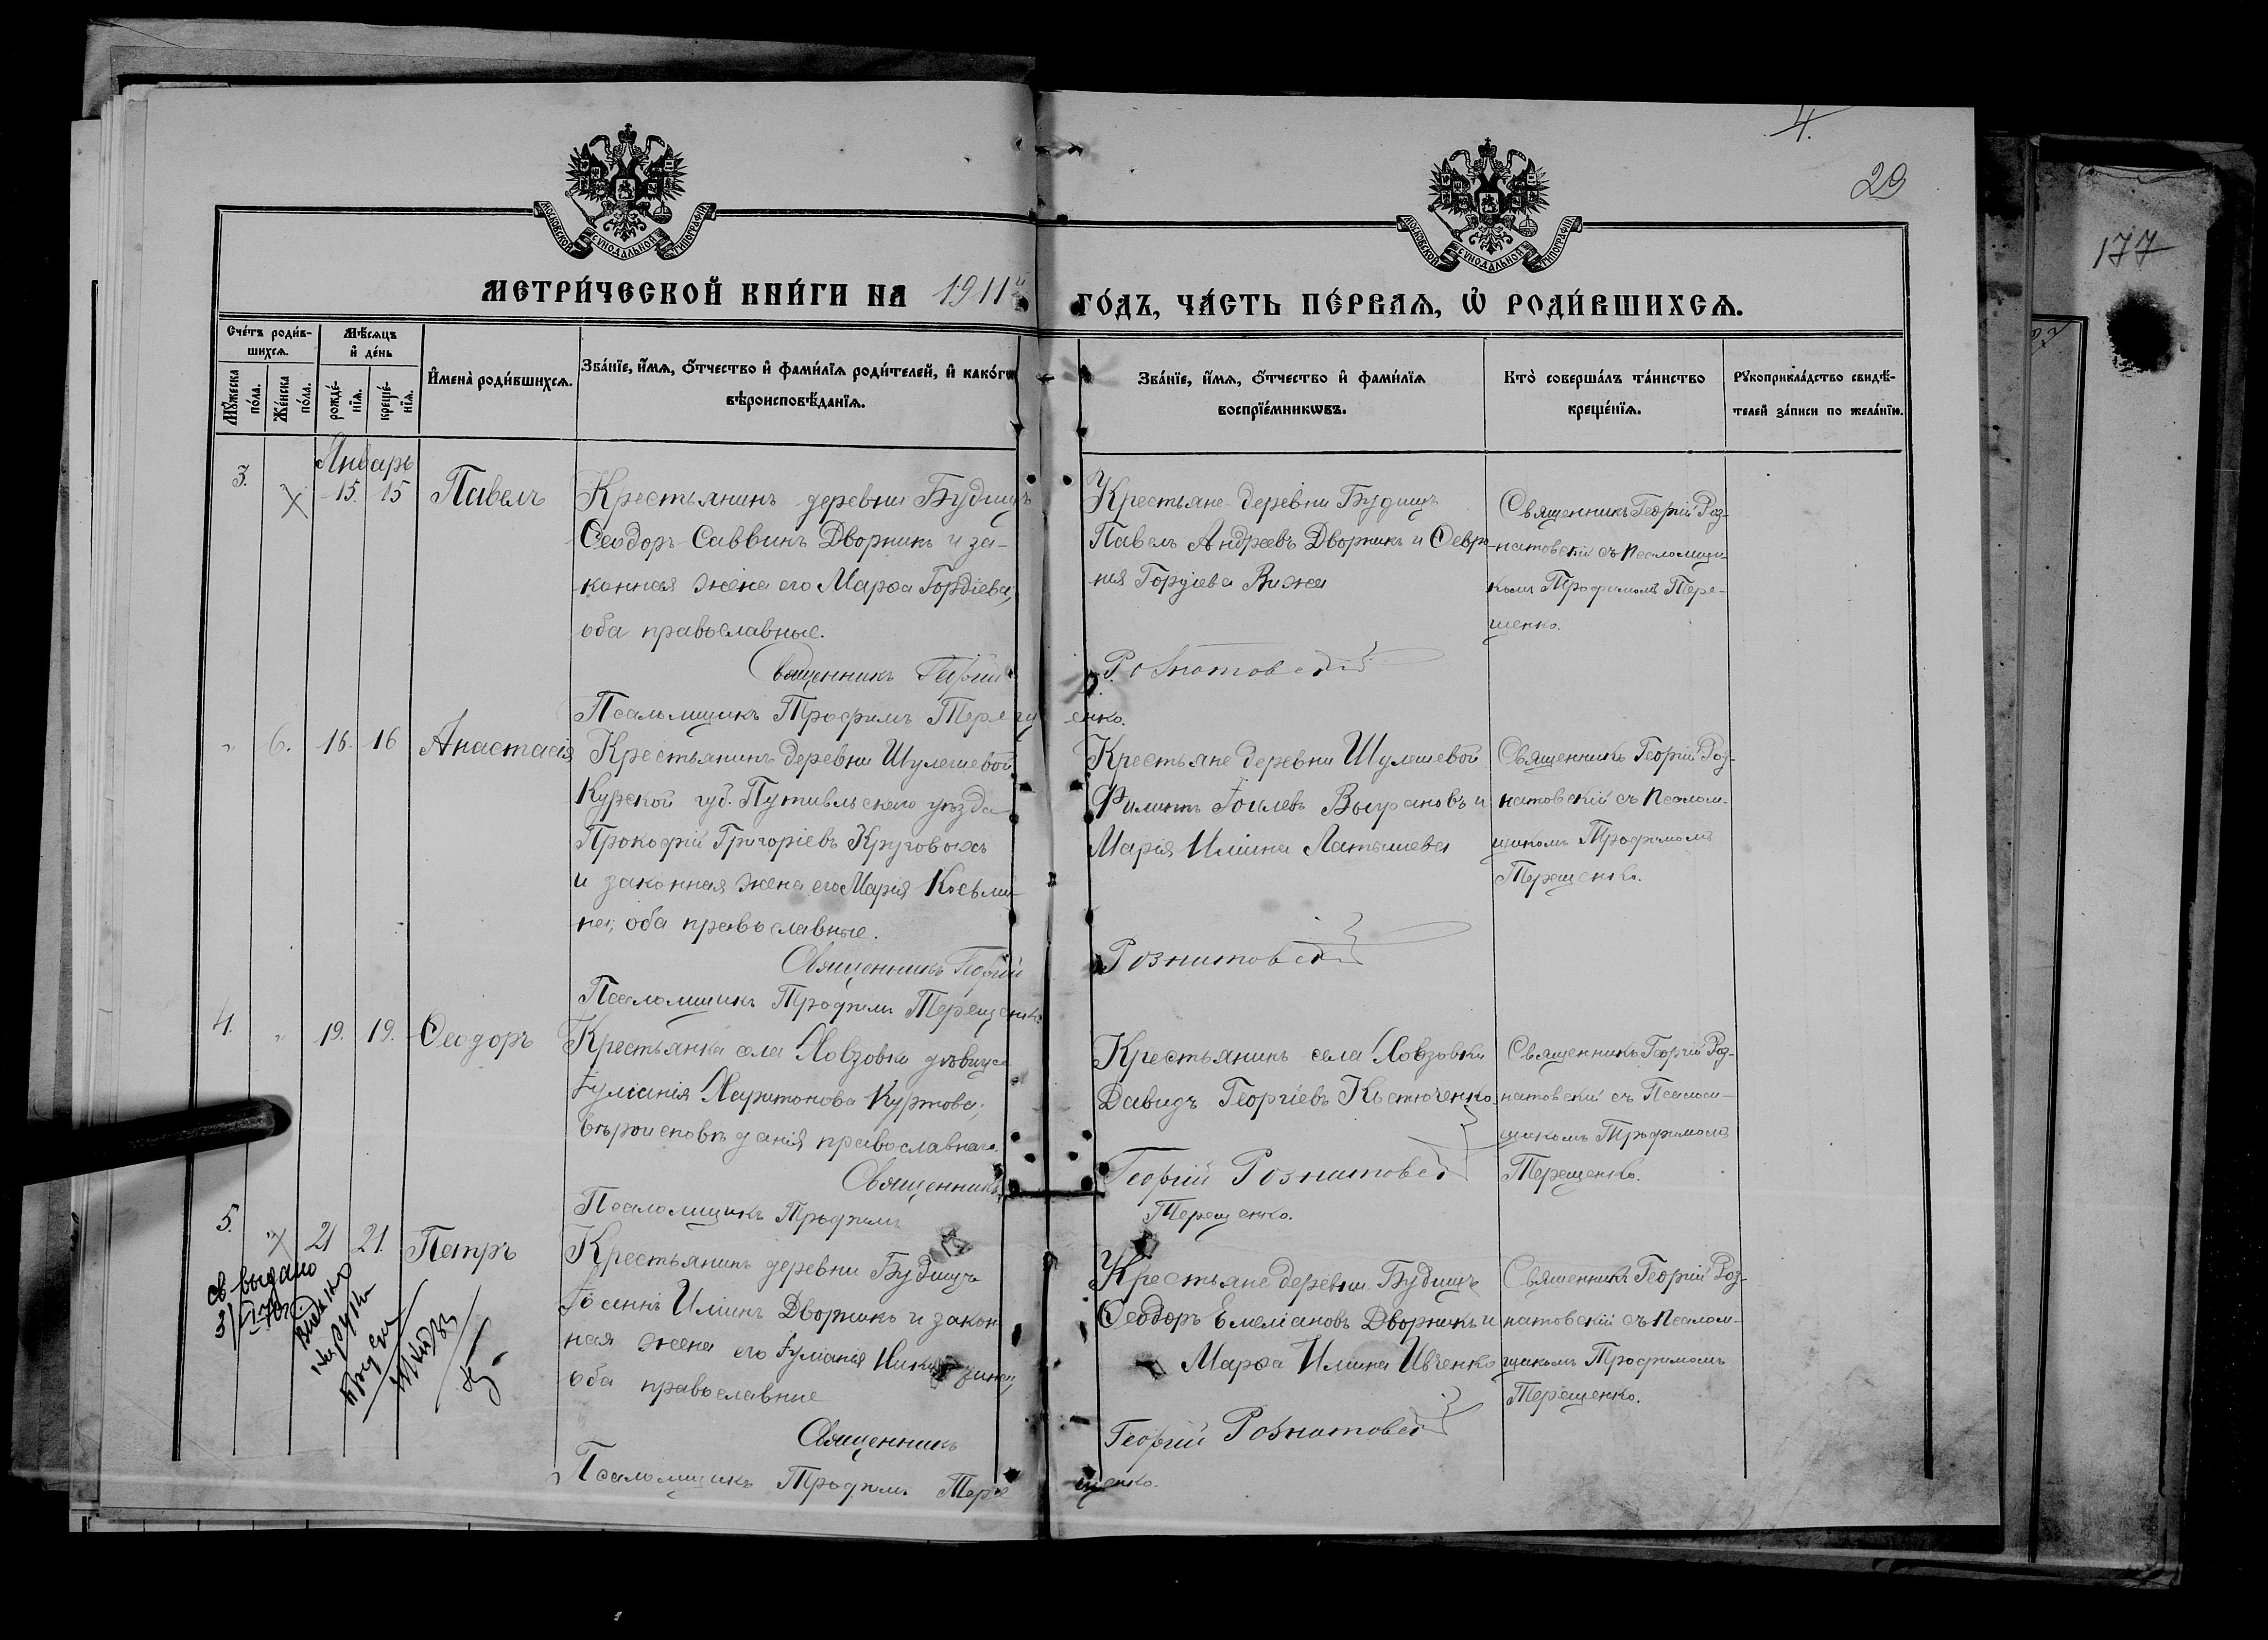 4.
29
177
МОСКОВСКОЙ СѴНОДАЛЬНОЙ ТИПОГРАФІИ
МОСКОВСКОЙ СѴНОДАЛЬНОЙ ТИПОГРАФІИ
МЕТРИ́ЧЕСКОЙ КНИ́ГИ НА 1911й
ГО́ДЪ, ЧА́СТЬ ПЕ́РВАѦ, Ѡ РОДИ́ВШИХСѦ.
Сче́тъ роди́в-
шихсѧ.
Мѣ́сѧцъ
и҆ де́нь
Мꙋ́жеска
по́ла.
Же́нска
по́ла.
рожде́-
нїѧ.
креще́-
нїѧ.
И҆мена̀ роди́вшихсѧ.
Зва́нїе, и҆́мѧ, ѻ҆́тчество и҆ фами́лїѧ роди́телей, и҆ како́гѡ
вѣроисповѣ́данїѧ.
Зва́нїе, и҆́мѧ, ѻ҆́тчество и҆ фами́лїѧ
воспрїе́мникѡвъ.
Кто̀ соверша́лъ та́инство
креще́нїѧ.
Рꙋкоприкла́дство свидѣ́-
телей за́писи по жела́нїю.
Январь
3.
15. 15
Павелъ
Крестьянинъ деревни Будищъ
Ѳеодоръ Саввинъ Дворникъ и за-
конная жена его Марѳа Гордіева,
оба православные.
Священникъ Георгій
Псаломщикъ Трофимъ Терещ
Крестьяне деревни Будищъ
Павелъ Андреевъ Дворникъ и Февро-
нія Гордіева
Рознатовскій
енко.
Священникъ Георгій Роз-
натовскій съ псаломщи-
комъ Трофимомъ Тере-
щенко.
" 6. 16. 16
Анастасія
Крестьянинъ деревни Шулешевой
Курской губ. Путивльскаго уѣзда
Прокофій Григоріевъ Круговыхъ
и законная жена его Марія Косьми-
на, оба православные.
Священникъ Георгій
Псаломщикъ Трофимъ Терещенко
Крестьяне деревни Шулешевой
Филиппъ и
Марія Иліина Латышева
Рознатовскій
Священникъ Георгій Роз-
натовскій съ псалом-
щикомъ Трофимомъ
Терещенко.
4. " 19. 19.
Ѳеодоръ
Крестьянка села Ховзовки дѣвица
Іуліанія Харитонова Куртова,
вѣроисповѣданія православнаго.
Священникъ
Псаломщикъ Трофимъ
Крестьянинъ села Ховзовки
Давидъ Георгіевъ Костюченко.
Георгій Рознатовскій
Терещенко.
Священникъ Георгій Роз-
натовскій съ Псалом-
щикомъ Трофимомъ
Терещенко.
5. " 21 21.
Петръ
Крестьянинъ деревни Будищъ
Іоаннъ Иліинъ Дворникъ и закон-
ная жена его Іуліанія
оба православные
Священникъ
Псаломщикъ Трофимъ Тере
Крестьяне деревни Будищъ
Ѳеодоръ Емеліановъ Дворникъ и
Марѳа Иліина Ивченко
Георгій Рознатовскій
щенко.
Священникъ Георгій Роз-
натовскій съ псалом-
щикомъ Трофимомъ
Терещенко.
св выдано